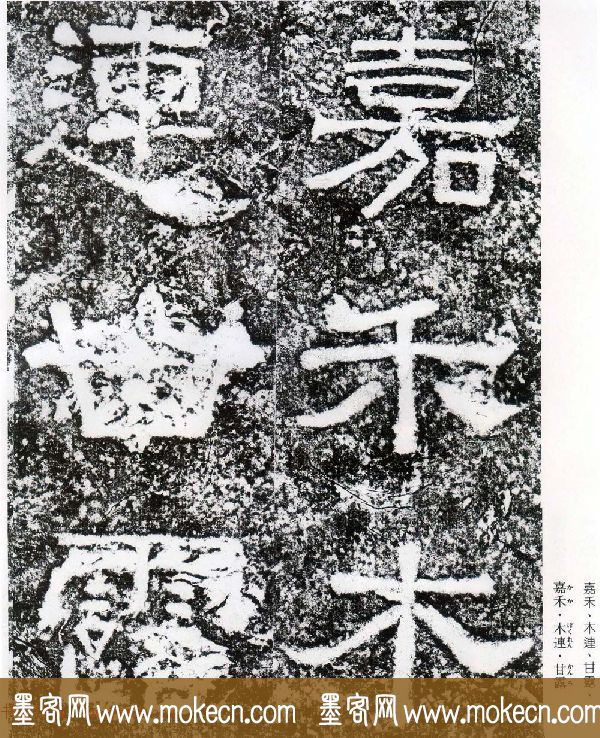 嘉禾木
連甘露
嘉禾、木連、甘露
嘉禾・木連・甘露
か か ぼくれん かん
墨客网 www.mokecn.com 墨客网 www.mokecn.com